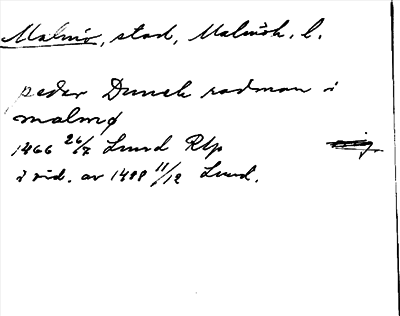 Malmö, stad, Malmöh. l.
peder Dunek radman i
malmø
1466 26/7 Lund Rlp
i vid. av 1488 11/12 Lund.